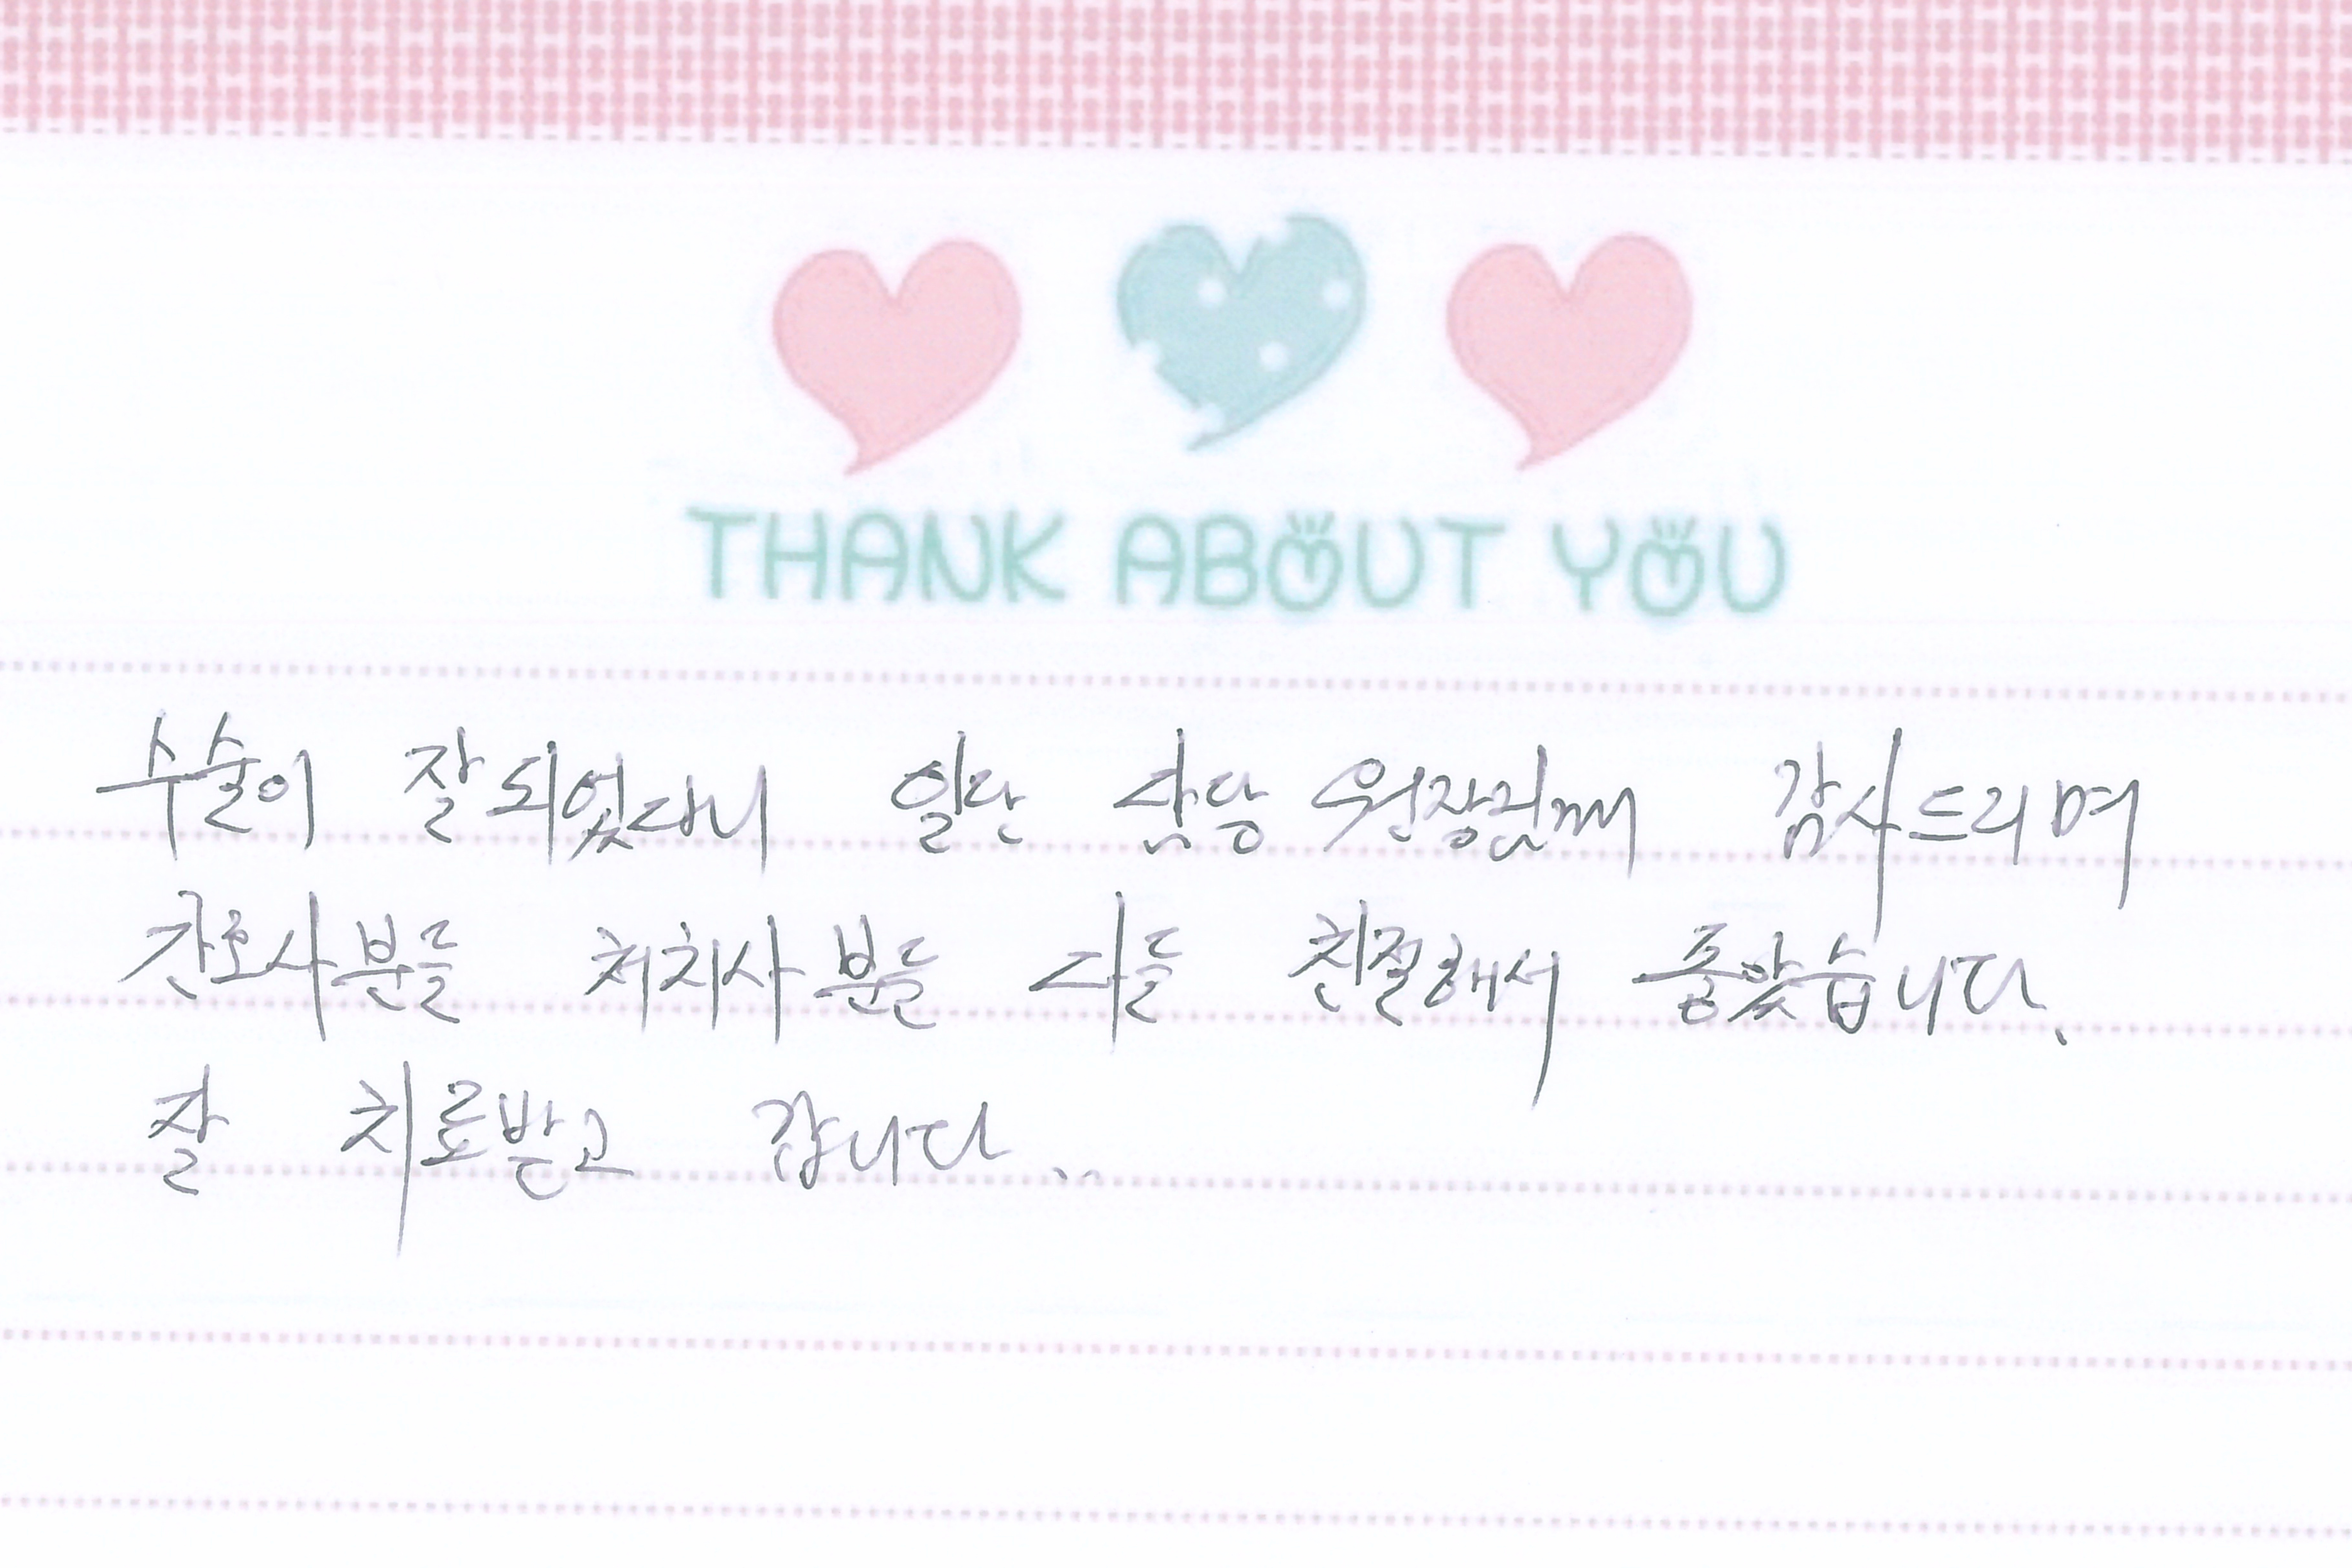 THANK ABOUT YOU
수술이 잘되었다니 일단 담당 원장님께 감사드리며
간호사분들 처치사분들 다들 친절해서 좋았습니다.
잘 치료받고 갑니다..